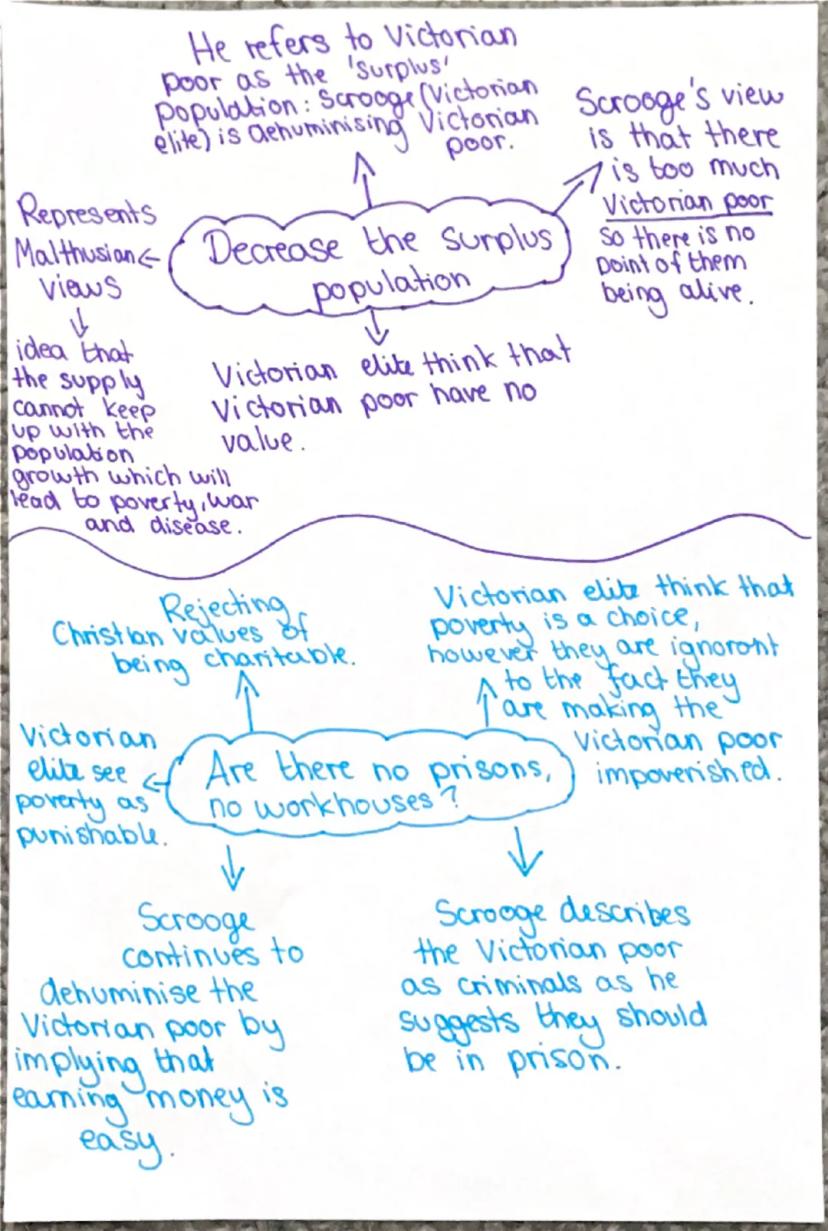 He refers to Victorian
poor as the 'surplus'
population: Scrooge (Victorian
elite) is dehuminising Victorian
poor.
Scrooge's view
is that there
is too much
Victorian poor
so there is no
point of them
being alive.
Represents
Malthusian
views
idea that
the supply
cannot keep
up with the
population
growth which will
lead to poverty, war
and disease.
Decrease the surplus
population
Victorian elite think that
Victorian poor have no
value.
Rejecting
Christian values of
being charitable.
Victorian elite think that
poverty is a choice,
however they are ignoront
to the fact they
are making the
Victorian poor
impoverished.
Victorian
elite see
poverty as
punishable.
Are there no prisons,
no workhouses?
Scrooge
continues to
dehuminise the
Victorian poor by
implying that
earning money is
easy.
Scrooge describes
the Victorian poor
as criminals as he
suggests they should
be in prison.